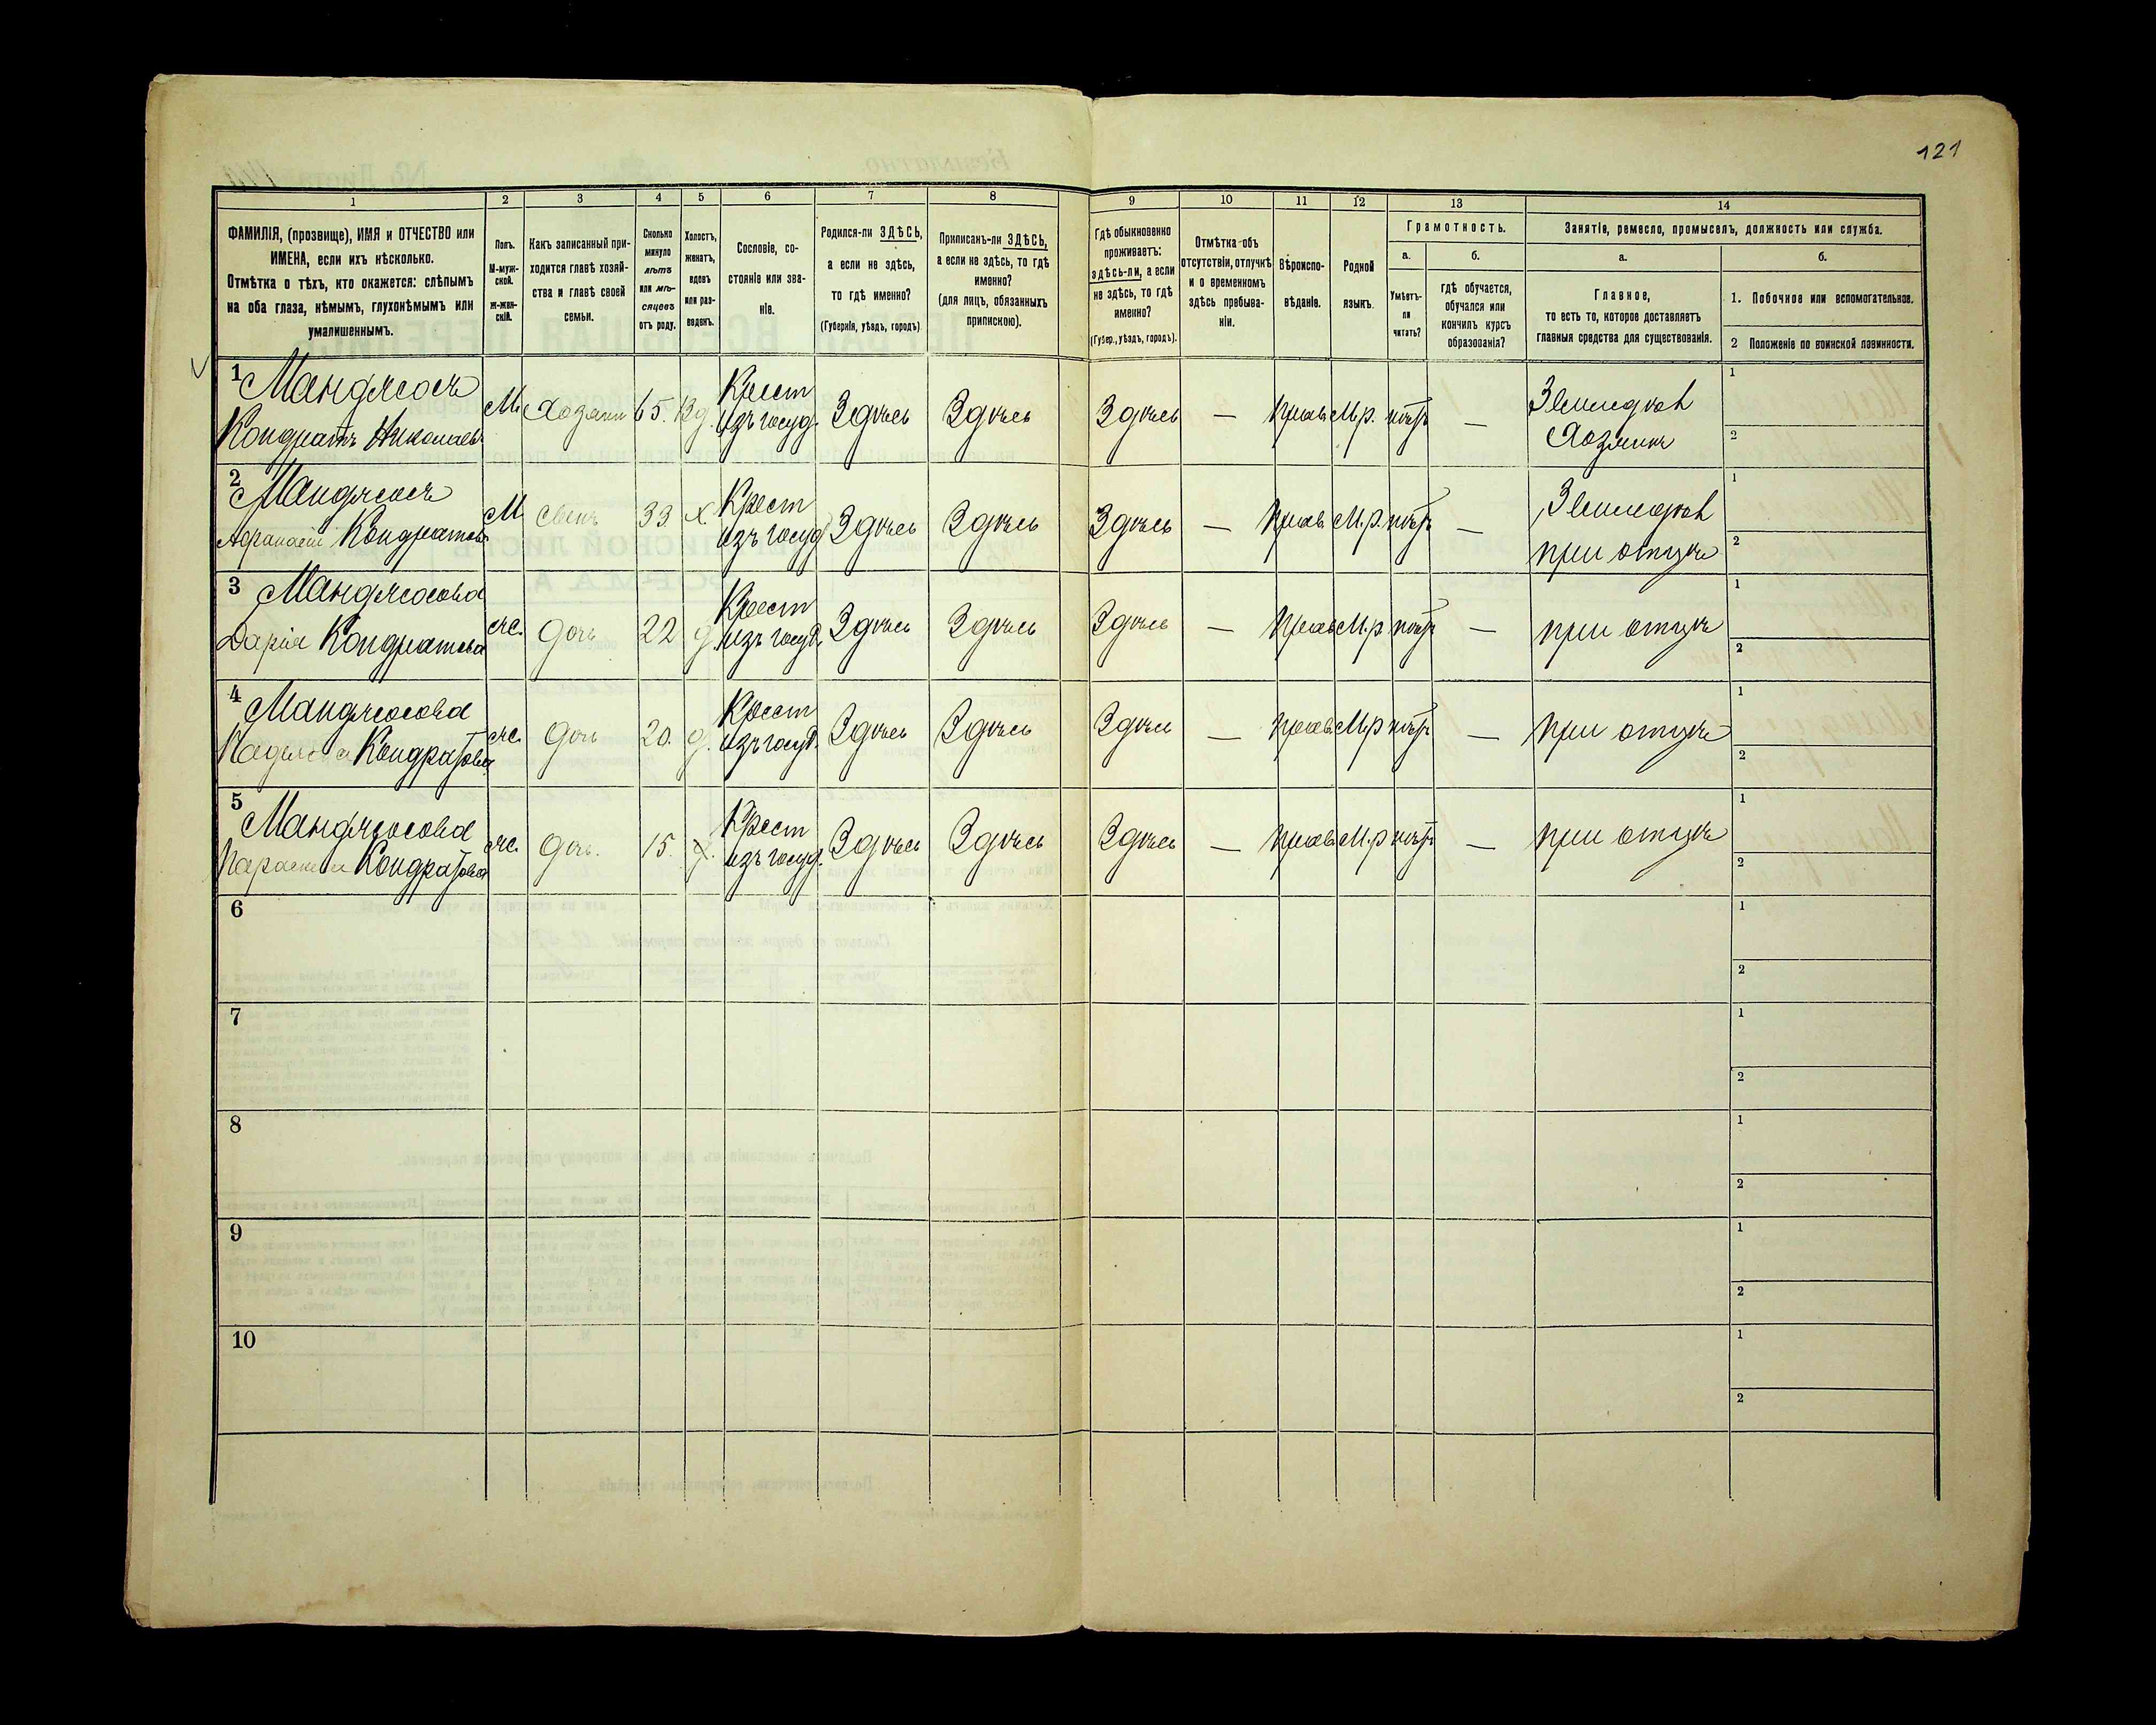 121
1
2
3
4
5
6
7
8
9
10
11
12
13
14
ФАМИЛІЯ, (прозвище), ИМЯ и ОТЧЕСТВО или
ИМЕНА, если ихъ нѣсколько.
Отмѣтка о тѣхъ, кто окажется: слѣпымъ
на оба глаза, нѣмымъ, глухонѣмымъ или
умалишеннымъ.
Полъ.
М-муж-
ской.
Ж-жен-
скій.
Какъ записанный при-
ходится главѣ хозяй-
ства и главѣ своей
семьи.
Сколько
минуло
лѣтъ
или мѣ-
сяцевъ
отъ роду.
Холостъ,
женатъ,
вдовъ
или раз-
веденъ.
Сословіе, со-
стояніе или зва-
ніе.
Родился-ли ЗДѢСЬ,
а если не здѣсь,
то гдѣ именно?
(Губернія, уѣздъ, городъ).
Приписанъ-ли ЗДѢСЬ,
а если не здѣсь, то гдѣ
именно?
(для лицъ, обязанныхъ
припискою).
Гдѣ обыкновенно
проживаетъ:
здѣсь-ли, а если
не здѣсь, то гдѣ
именно?
(Губер., уѣздъ, городъ).
Отмѣтка объ
отсутствіи, отлучкѣ
и о временномъ
здѣсь пребыва-
ніи.
Вѣроиспо-
вѣданіе.
Родной
языкъ.
Грамотность.
а.
Умѣетъ-
ли
читать?
б.
гдѣ обучается,
обучался или
кончилъ курсъ
образованія?
Занятіе, ремесло, промыселъ, должность или служба.
а.
Главное,
то есть то, которое доставляетъ
главныя средства для существованія.
б.
1. Побочное или вспомогательное.
2 Положеніе по воинской повинности.
1
Кондратъ Николаевъ
М. Хозяинъ 65. Вд. Крест изъ госуд. Здѣсь Здѣсь Здѣсь — прав М.р. нѣтъ —
Хозяинъ
1
2
2
Кондратовъ
М 33 х. Крест изъ госуд Здѣсь Здѣсь Здѣсь — прав М.р. нѣтъ —
при отцѣ
1
2
3
Дарія Кондратова
ж. дочь 22 д. Крест изъ госуд. Здѣсь Здѣсь Здѣсь — прав М.р нѣтъ — при отцѣ
1
2
4
Кондратова
ж. дочь 20. д. Крест изъ госуд. Здѣсь Здѣсь Здѣсь — прав М.р нѣтъ — при отцѣ
1
2
5
Кондратова
ж. дочь. 15. д. Крест изъ госуд. Здѣсь Здѣсь Здѣсь — прав М.р нѣтъ — при отцѣ
1
2
6
1
2
7
1
2
8
1
2
9
1
2
10
1
2